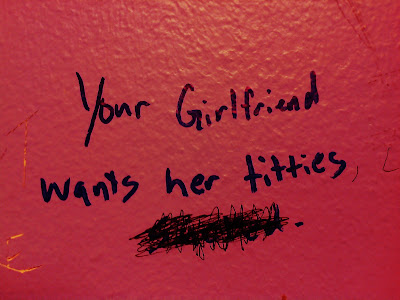 Your Girlfriend
wants her titties